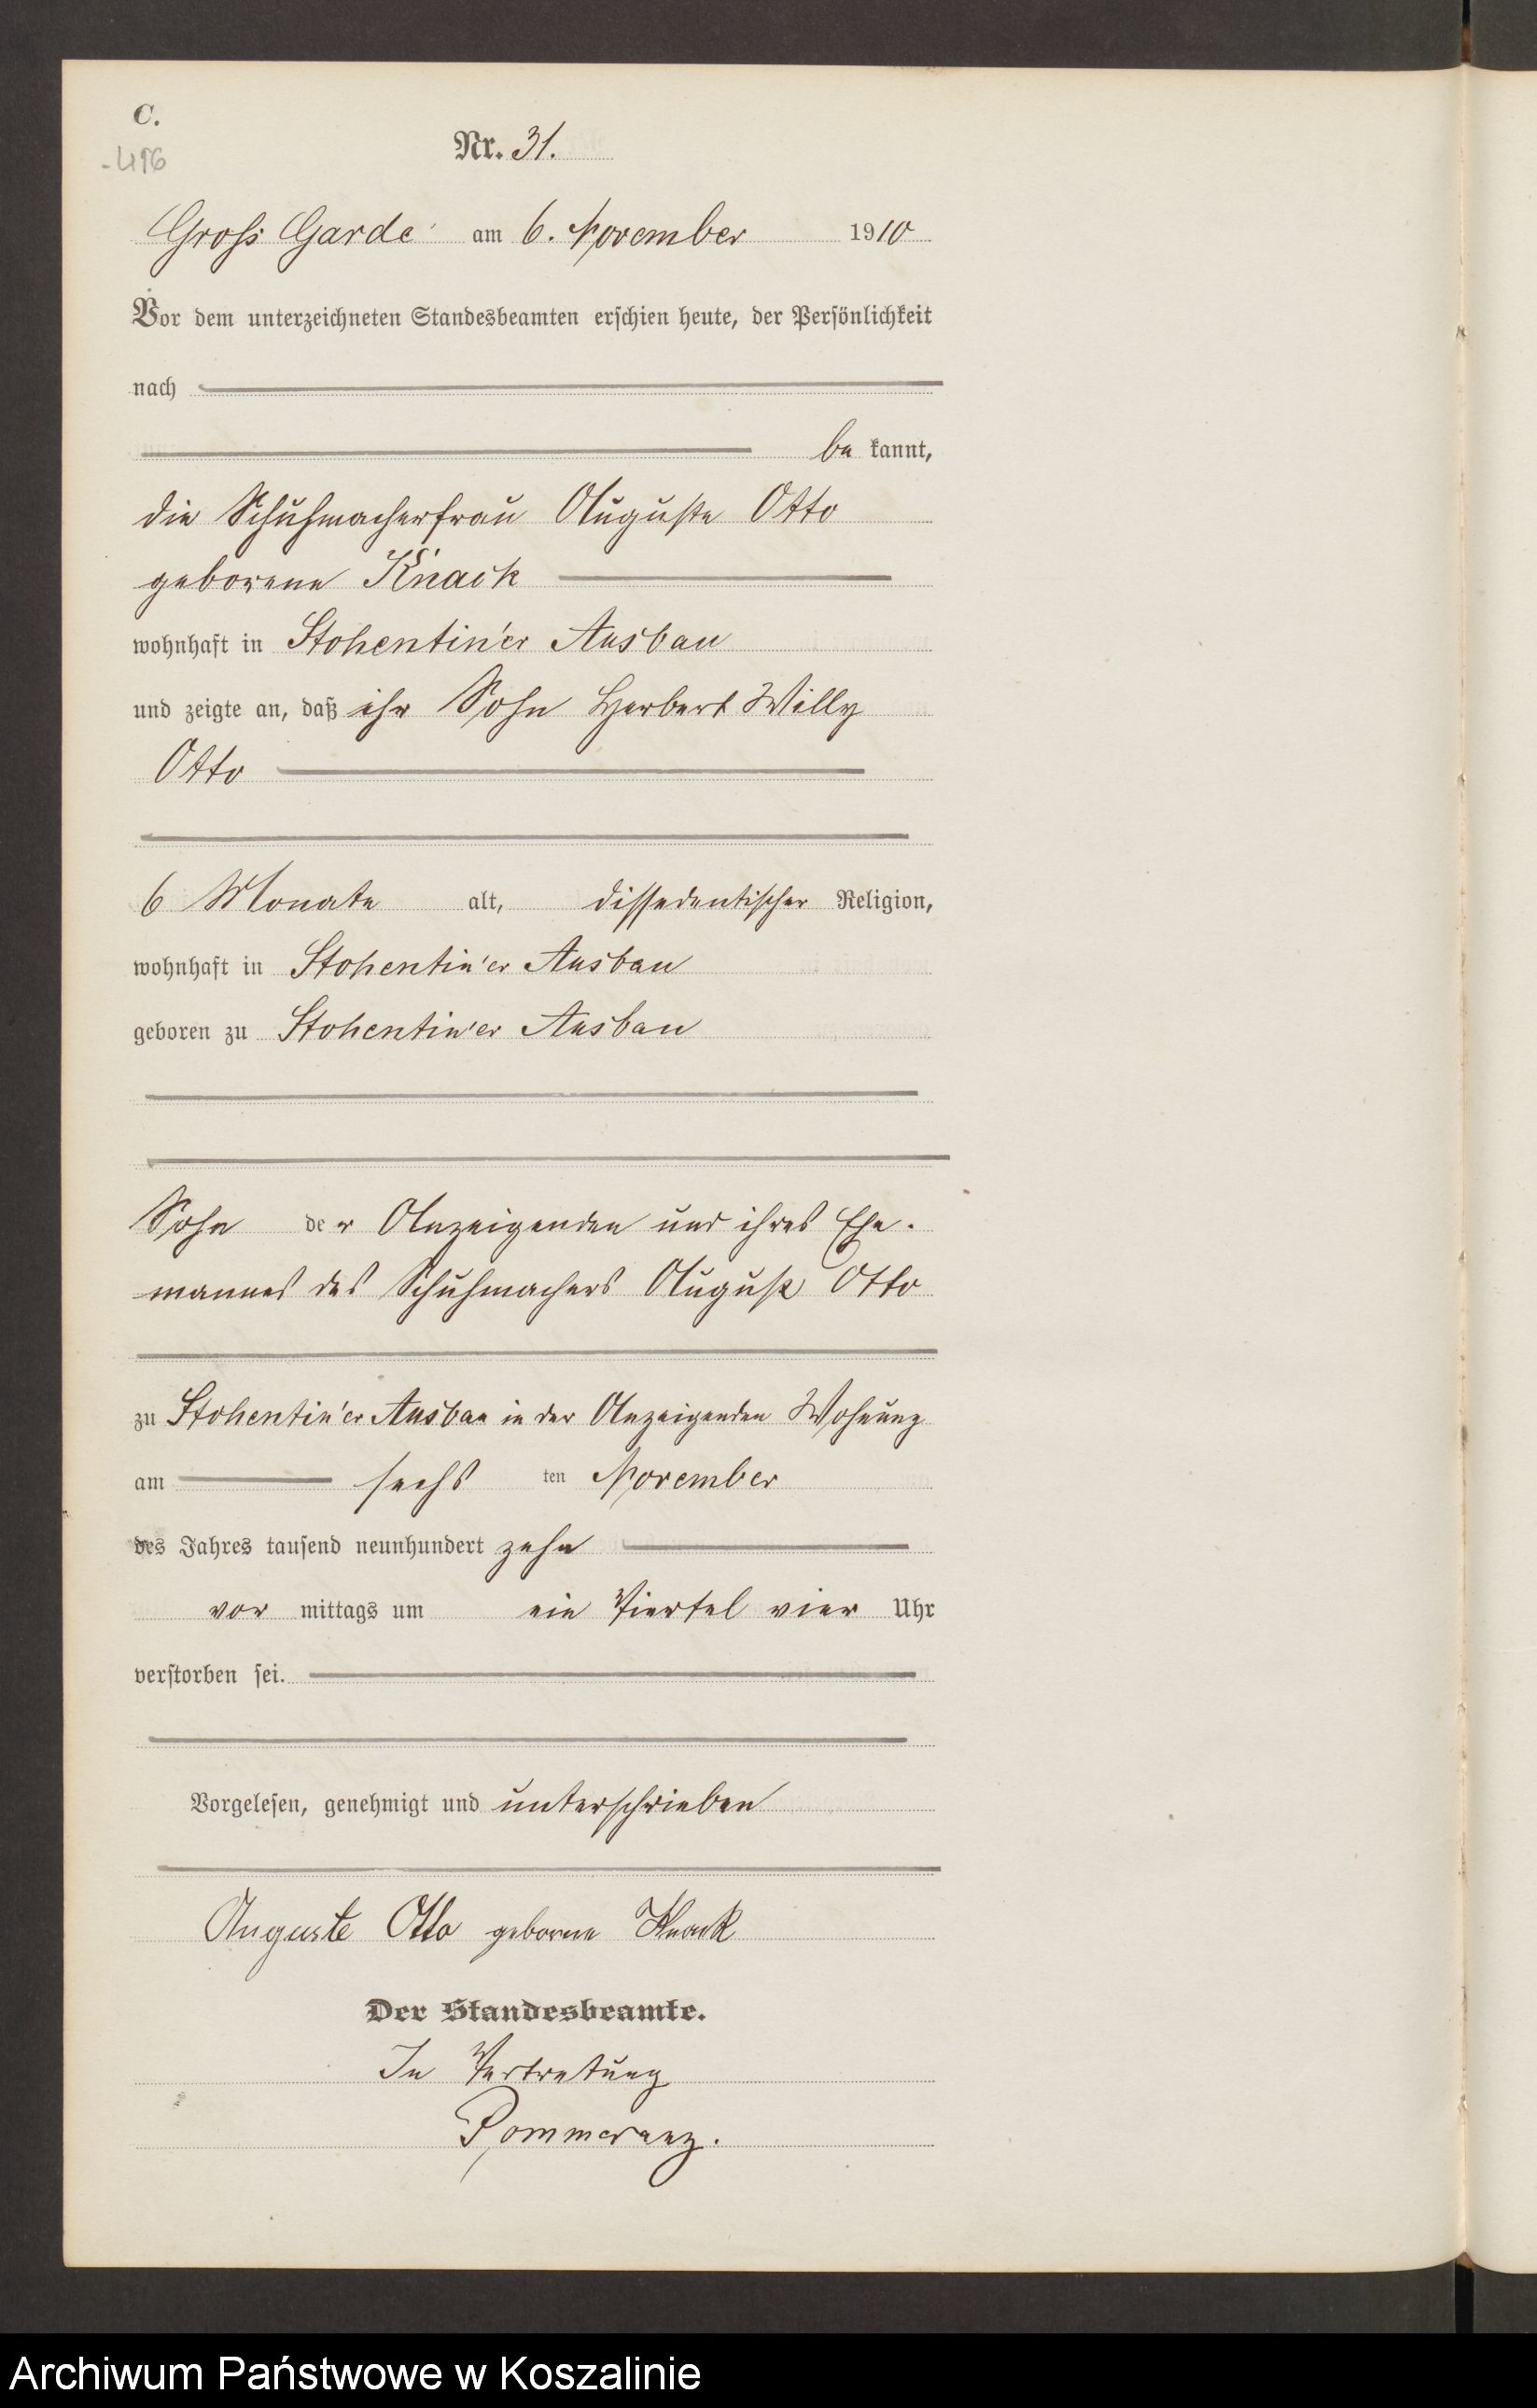 C.
-496
Nr. 31.
Groß Garde am 6. November 1910
Vor dem unterzeichneten Standesbeamten erschien heute, der Persönlichkeit
nach
be kannt,
die Schuhmacherfrau Auguste Otto
geborene Knack
wohnhaft in Stohentin'er Ausbau
und zeigte an, daß ihr Sohn Herbert Willy
Otto
6 Monate alt, dissedentischer Religion,
wohnhaft in Stohentin'er Ausbau
geboren zu Stohentin'er Ausbau
Sohn der Anzeigenden und ihres Ehe-
mannes des Schuhmachers August Otto
zu Stohentin'er Ausbau in der Anzeigenden Wohnung
am sechs ten November
des Jahres tausend neunhundert zehn
vor mittags um ein Viertel vier Uhr
verstorben sei.
Vorgelesen, genehmigt und unterschrieben
Auguste Otto geborne Knack
Der Standesbeamte.
In Vertretung
Pommerenz.
Archiwum Państwowe w Koszalinie